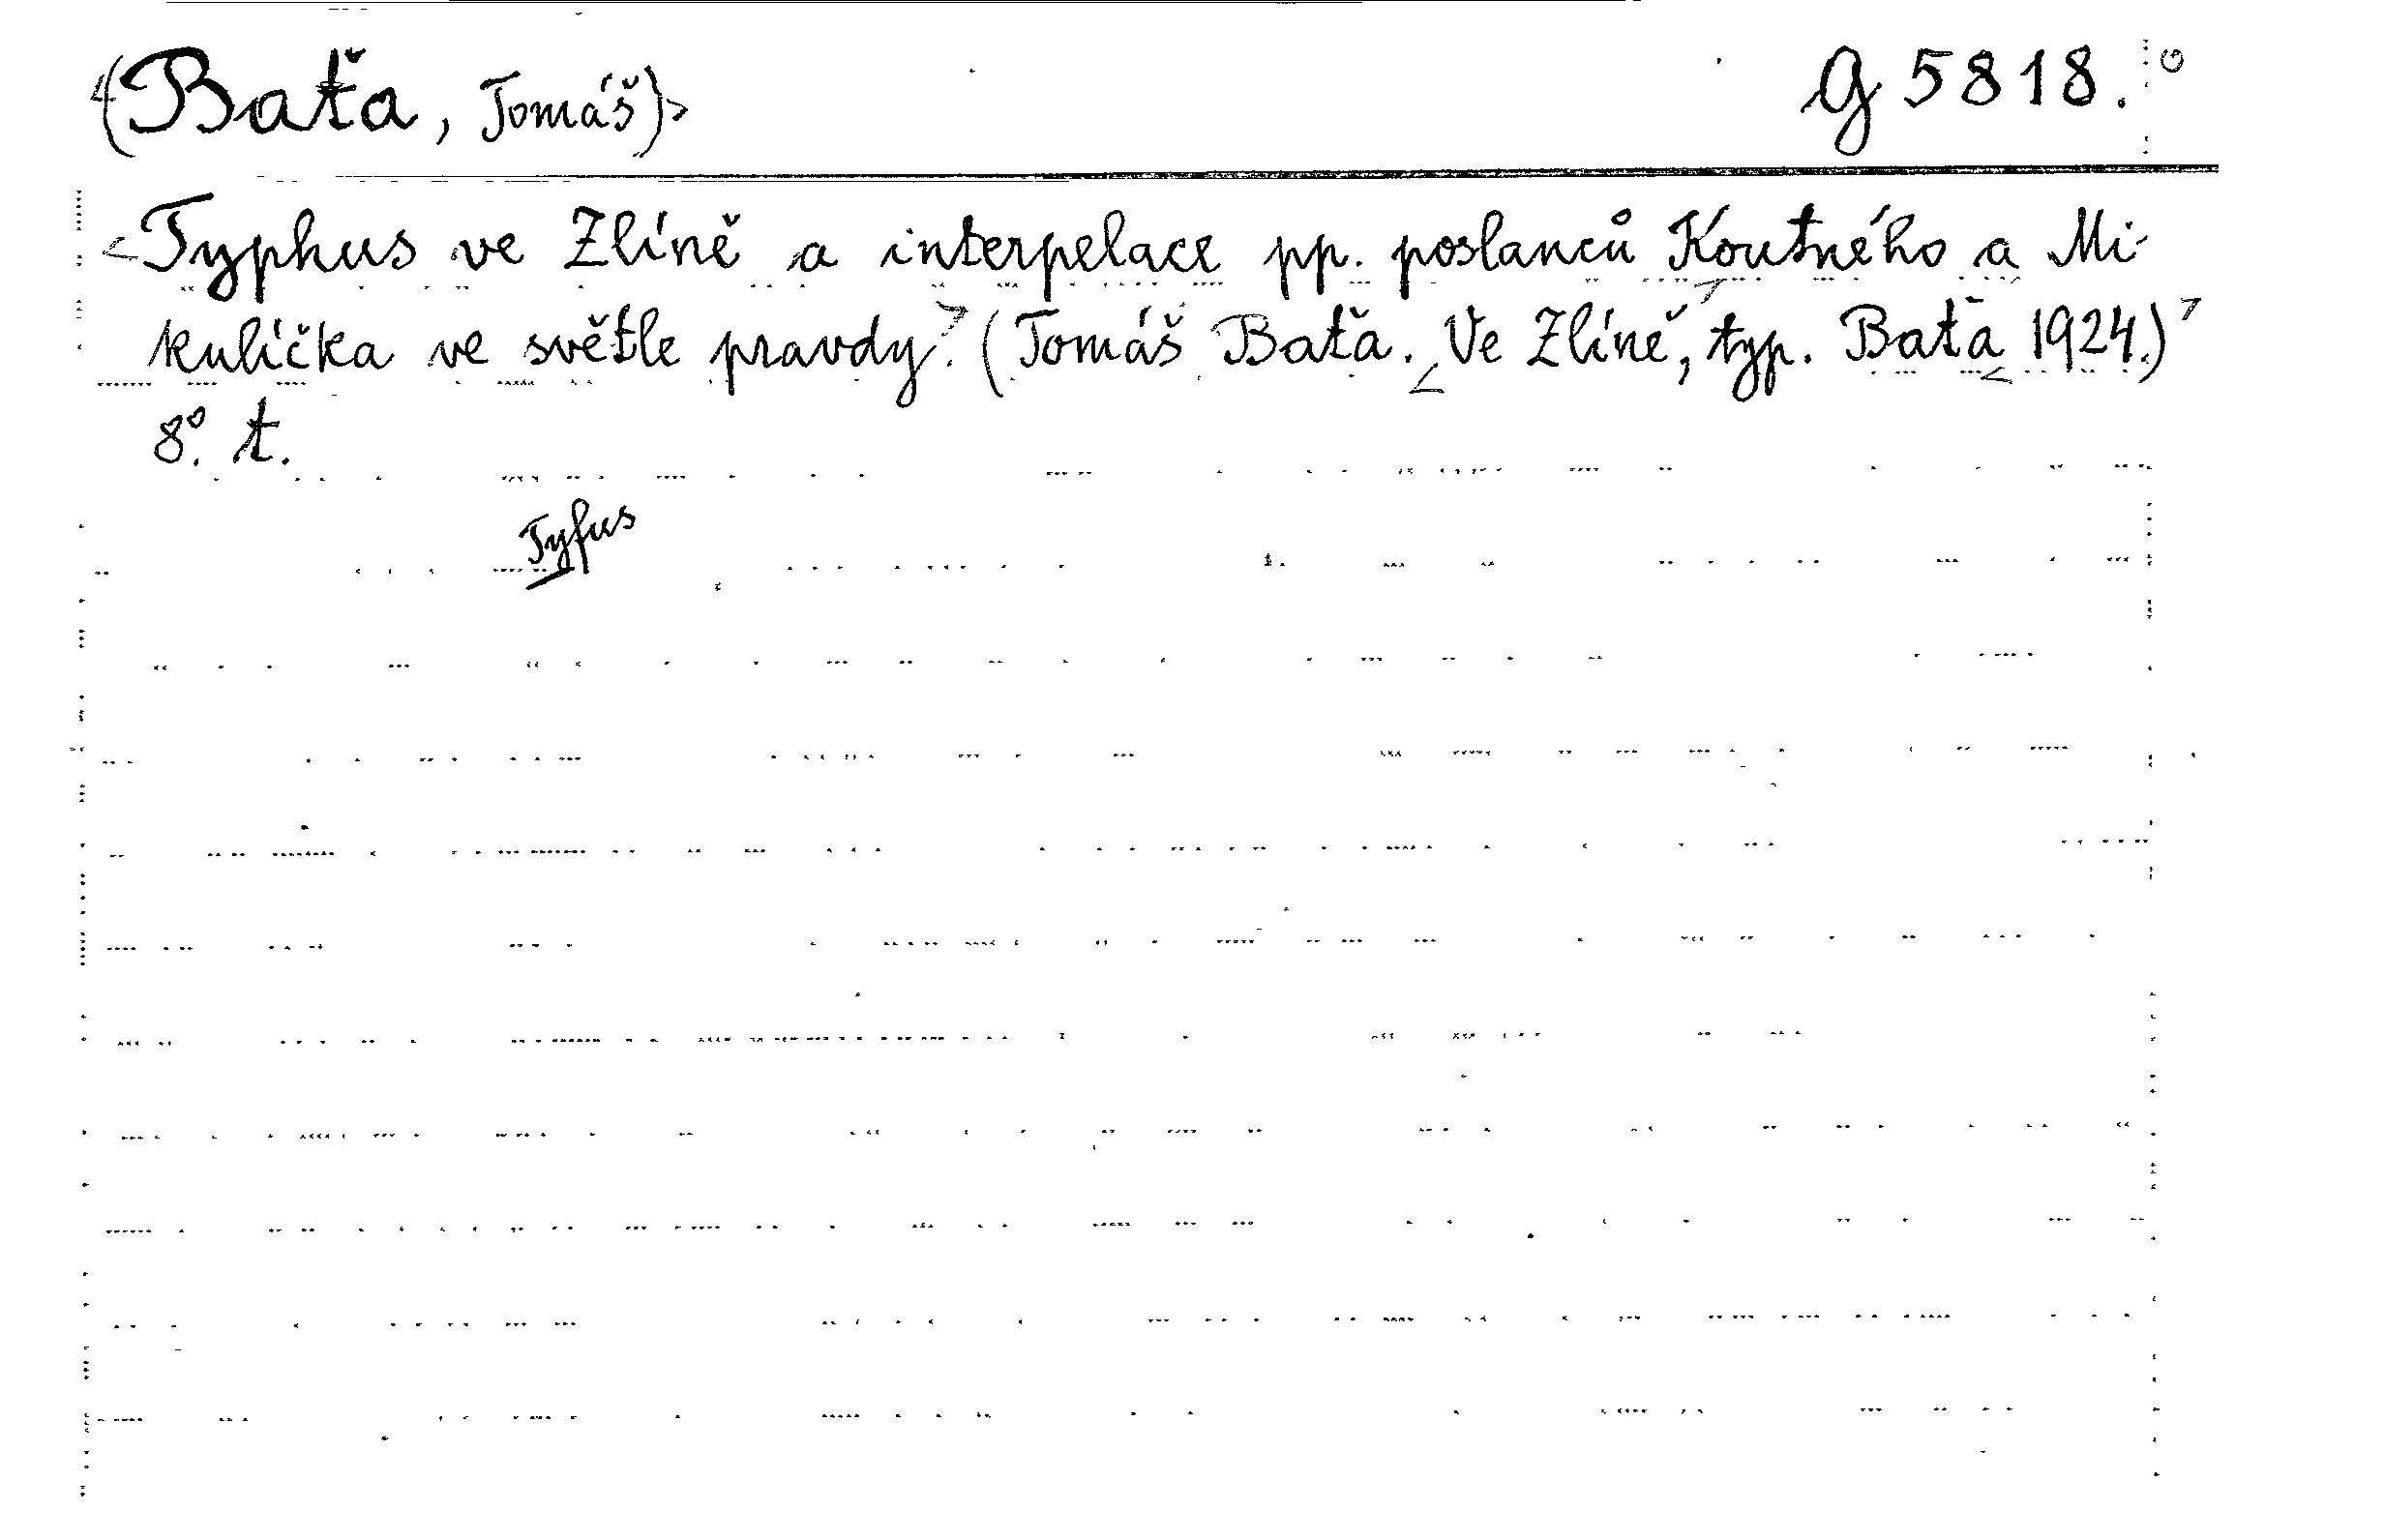 (Baťa, Tomáš) G 5818.
Typhus ve Zlíně a interpelace pp. poslanců Koutného a Mi-
kulíčka ve světle pravdy. (Tomáš Baťa. Ve Zlíně, typ. Baťa 1924.)
8°. t.
Tyfus